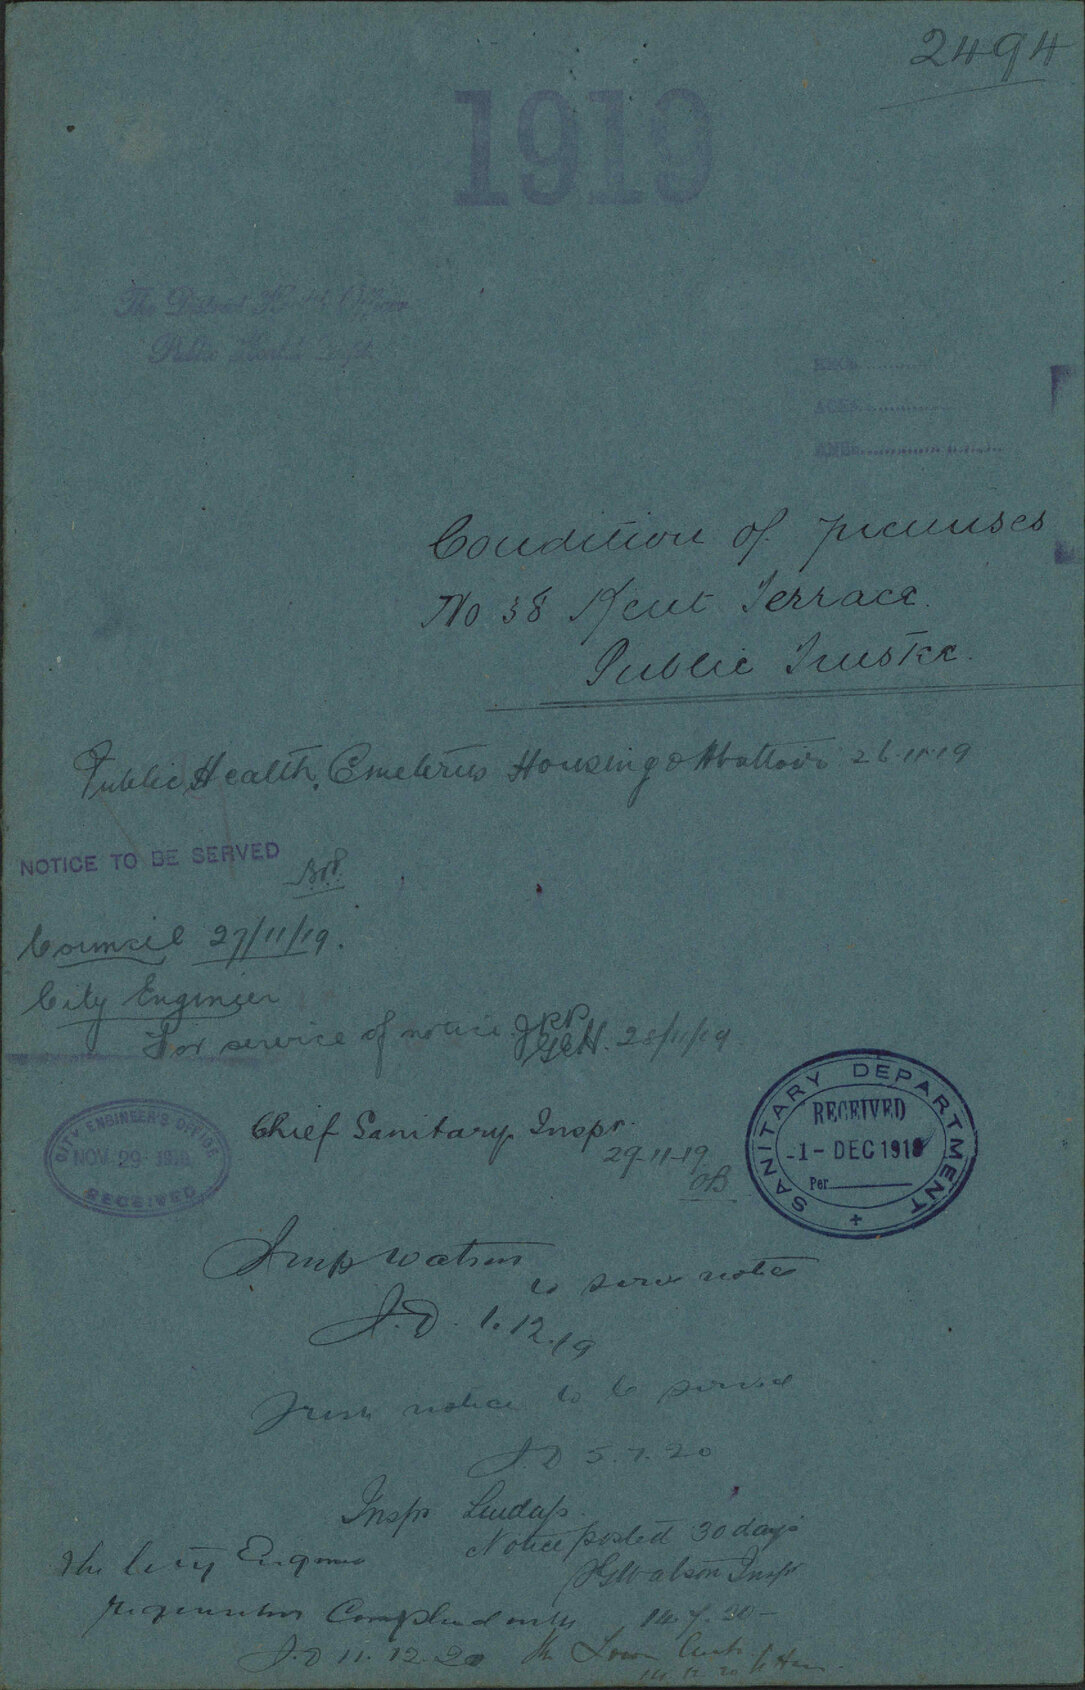 2494
1919
The District Health Officer
Public Health Dept
Condition of premises
No 38 Kent Terrace.
Public Trustee.
Public Health, Cemeteries Housing & Abattoir 26.11.19
NOTICE TO BE SERVED
Council 27/11/19.
City Engineer
For service of notice. 28/11/19
CITY ENGINEER'S OFFICE
NOV. 29 1919
RECEIVED
Chief Sanitary Inspr.
29-11-19
SANITARY DEPARTMENT
RECEIVED
-1- DEC 1919
Per
Insp Watson
to serve notice
J.D. 1.12.19
Fresh notice to be served
J.D 5.7.20
Insp
Notice posted 30 days
Watson Inspr
14.7.20
The City Engineer
requisition Complied with
J.D 11.12.20
The Town Clerk
14.12.20